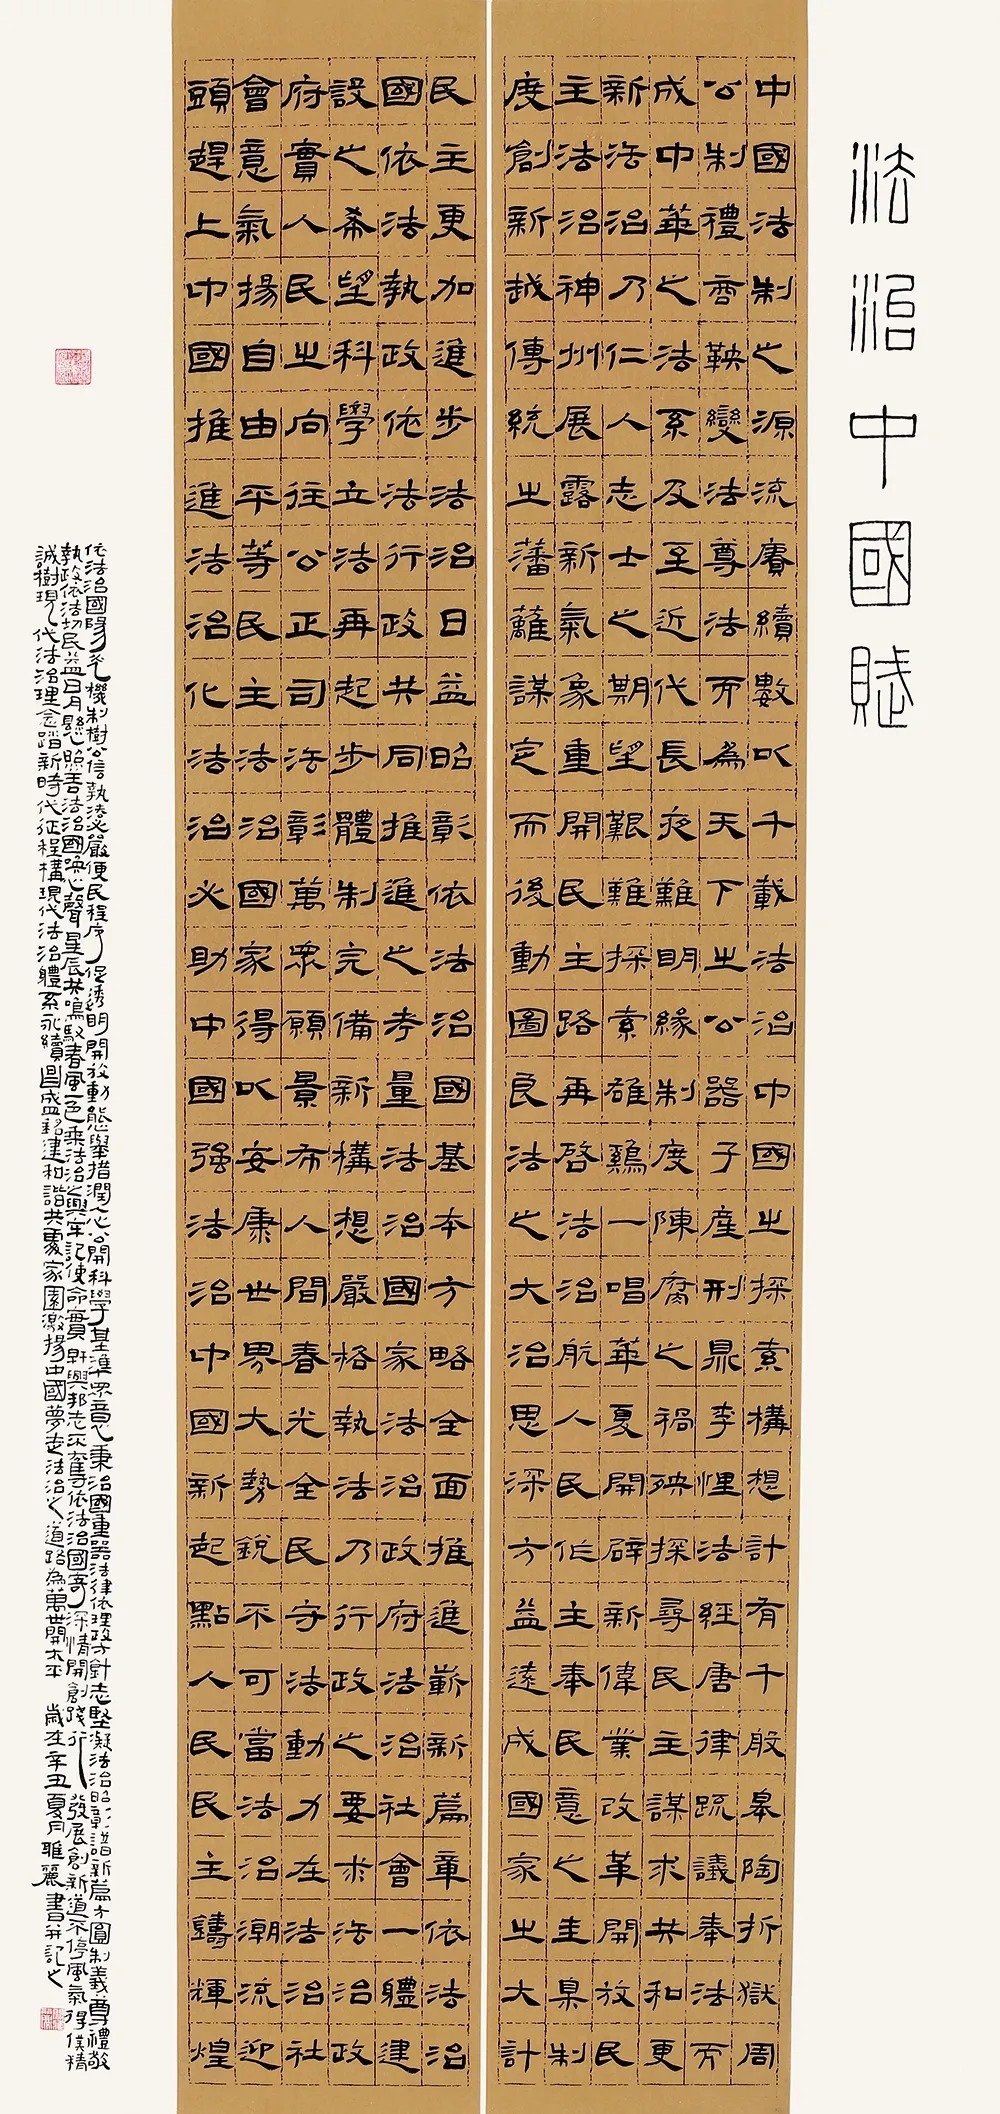 法治中國賦
中國法制之源流賡續數以千載法治中國之探索構想計有千般皋陶折獄周
公制禮商鞅變法尊法而為天下之公器子產刑鼎李悝法經唐律疏議奉法而
成中華之法系及至近代長夜難明緣制度陳腐之禍殃探尋民主謀求共和更
新法治乃仁人志士之期望艱難探索雄鷄一唱華夏開辟新偉業改革開放民
主法治神州展露新氣象重開民主路再啓法治航人民作主奉民意之圭臬制
度創新越傳統之藩蘺謀定而後動圖良法之大治思深方益遠成國家之大計
民主更加進步法治日益昭彰依法治國基本方略全面推進嶄新篇章依法治
國依法執政依法行政共同推進之考量法治國家法治政府法治社會一體建
設之希望科學立法再起步體制完備新構想嚴格執法乃行政之要求法治政
府實人民之向往公正司法彰萬眾願景布人間春光全民守法動力在法治社
會意氣揚自由平等民主法治國家得以安康世界大勢銳不可當法治潮流迎
頭趕上中國推進法治化法治必助中國強法治中國新起點人民民主鑄輝煌
依法治國陽光機制樹公信執法必嚴便民程序促透明開放動態舉措潤人心公開科學基準眾意秉治國重器法律依理政方針志堅凝法治昭彰譜新篇方圓制義尊禮敬
執政依法功民益日月懸照吾法治國喚心聲星辰共鳴馭春風色乘法治興牢記使命實幹興邦志不奪依法治國寄深情開創踐行發展創新道不停風氣得僕精
誠樹現代法治理念踏新時代征程構現代法治體系永續昌盛銘建和諧共處家園激揚中國夢走法治之道路為萬世開太平 歲在辛丑夏月雅麗書并記之